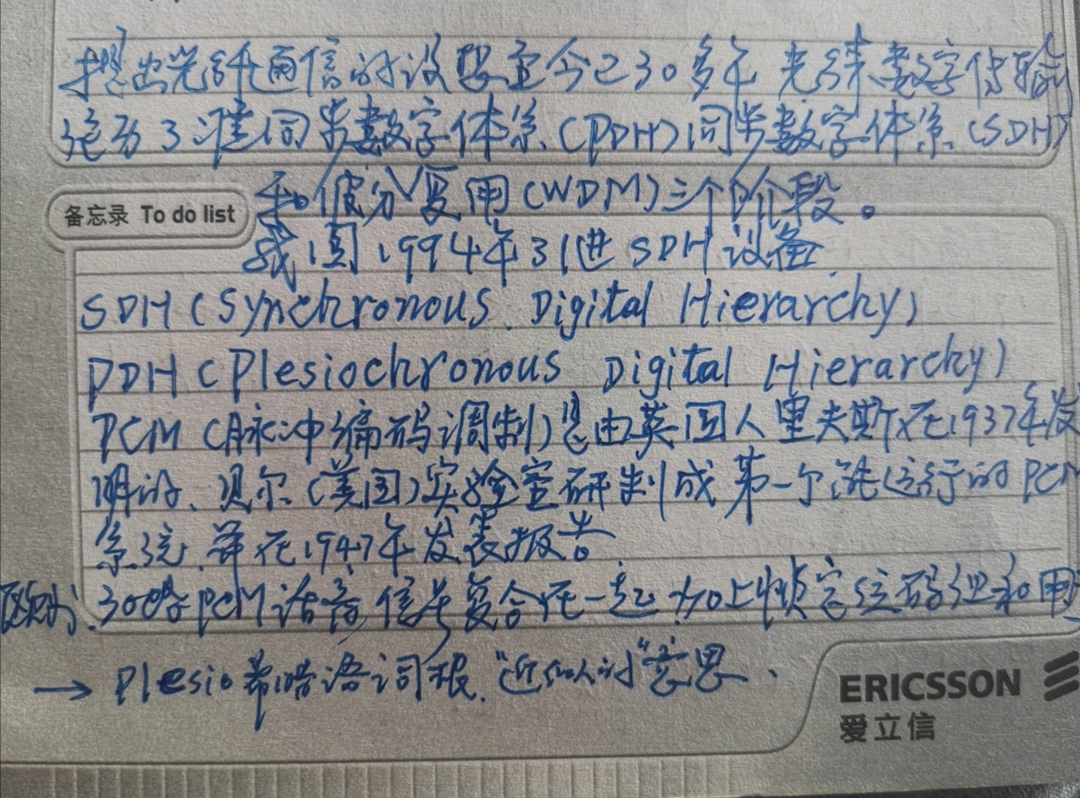 提出光纤通信的设想至今已30多年 光纤数字传输
经历了准同步数字体系(PDH)同步数字体系(SDH)
备忘录 To do list
和波分复用(WDM)三个阶段。
我国1994年引进SDH设备
SDH(Synchronous Digital Hierarchy)
PDH(Plesiochronous Digital Hierarchy)
PCM(脉冲编码调制)是由英国人里夫斯在1937年发
明的、贝尔(美国)实验室研制成第一个能运行的PCM
系统 并在1947年发表报告
30路PCM话音信号复合在一起 加上帧定位码组和用
→ Plesio希腊语词根 "近似的"意思.
ERICSSON
爱立信